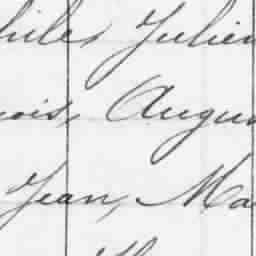 hiles Julien
ois, Augus
Jean, Ma